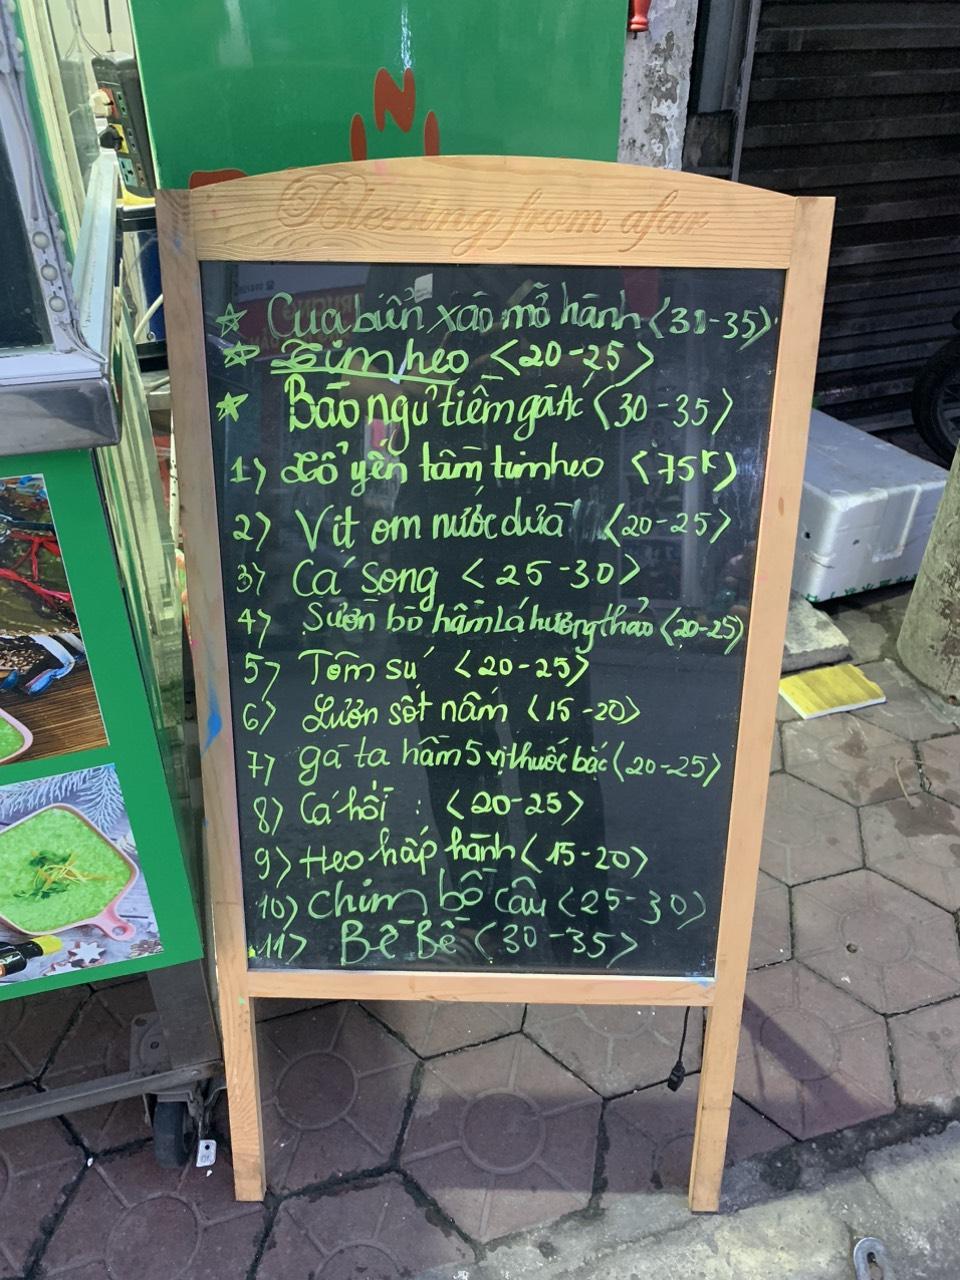 Blessing from afar
☆ Cua biển xào mỡ hành <30-35>
☆ Tim heo <20-25>
☆ Bào ngư tiềm gà Ác <30-35>
1) Tổ yến tâm tim heo <75K>
2) Vịt om nước dừa <20-25>
3) Cá song <25-30>
4) Sườn bò hầm Lá hương thảo <20-25>
5) Tôm sú <20-25>
6) Lươn sốt nấm <15-20>
7) gà ta hầm 5 vị thuốc bắc <20-25>
8) Cá hồi : <20-25>
9) Heo hấp hành <15-20>
10) Chim bồ câu <25-30>
11) Bề Bề <30-35>